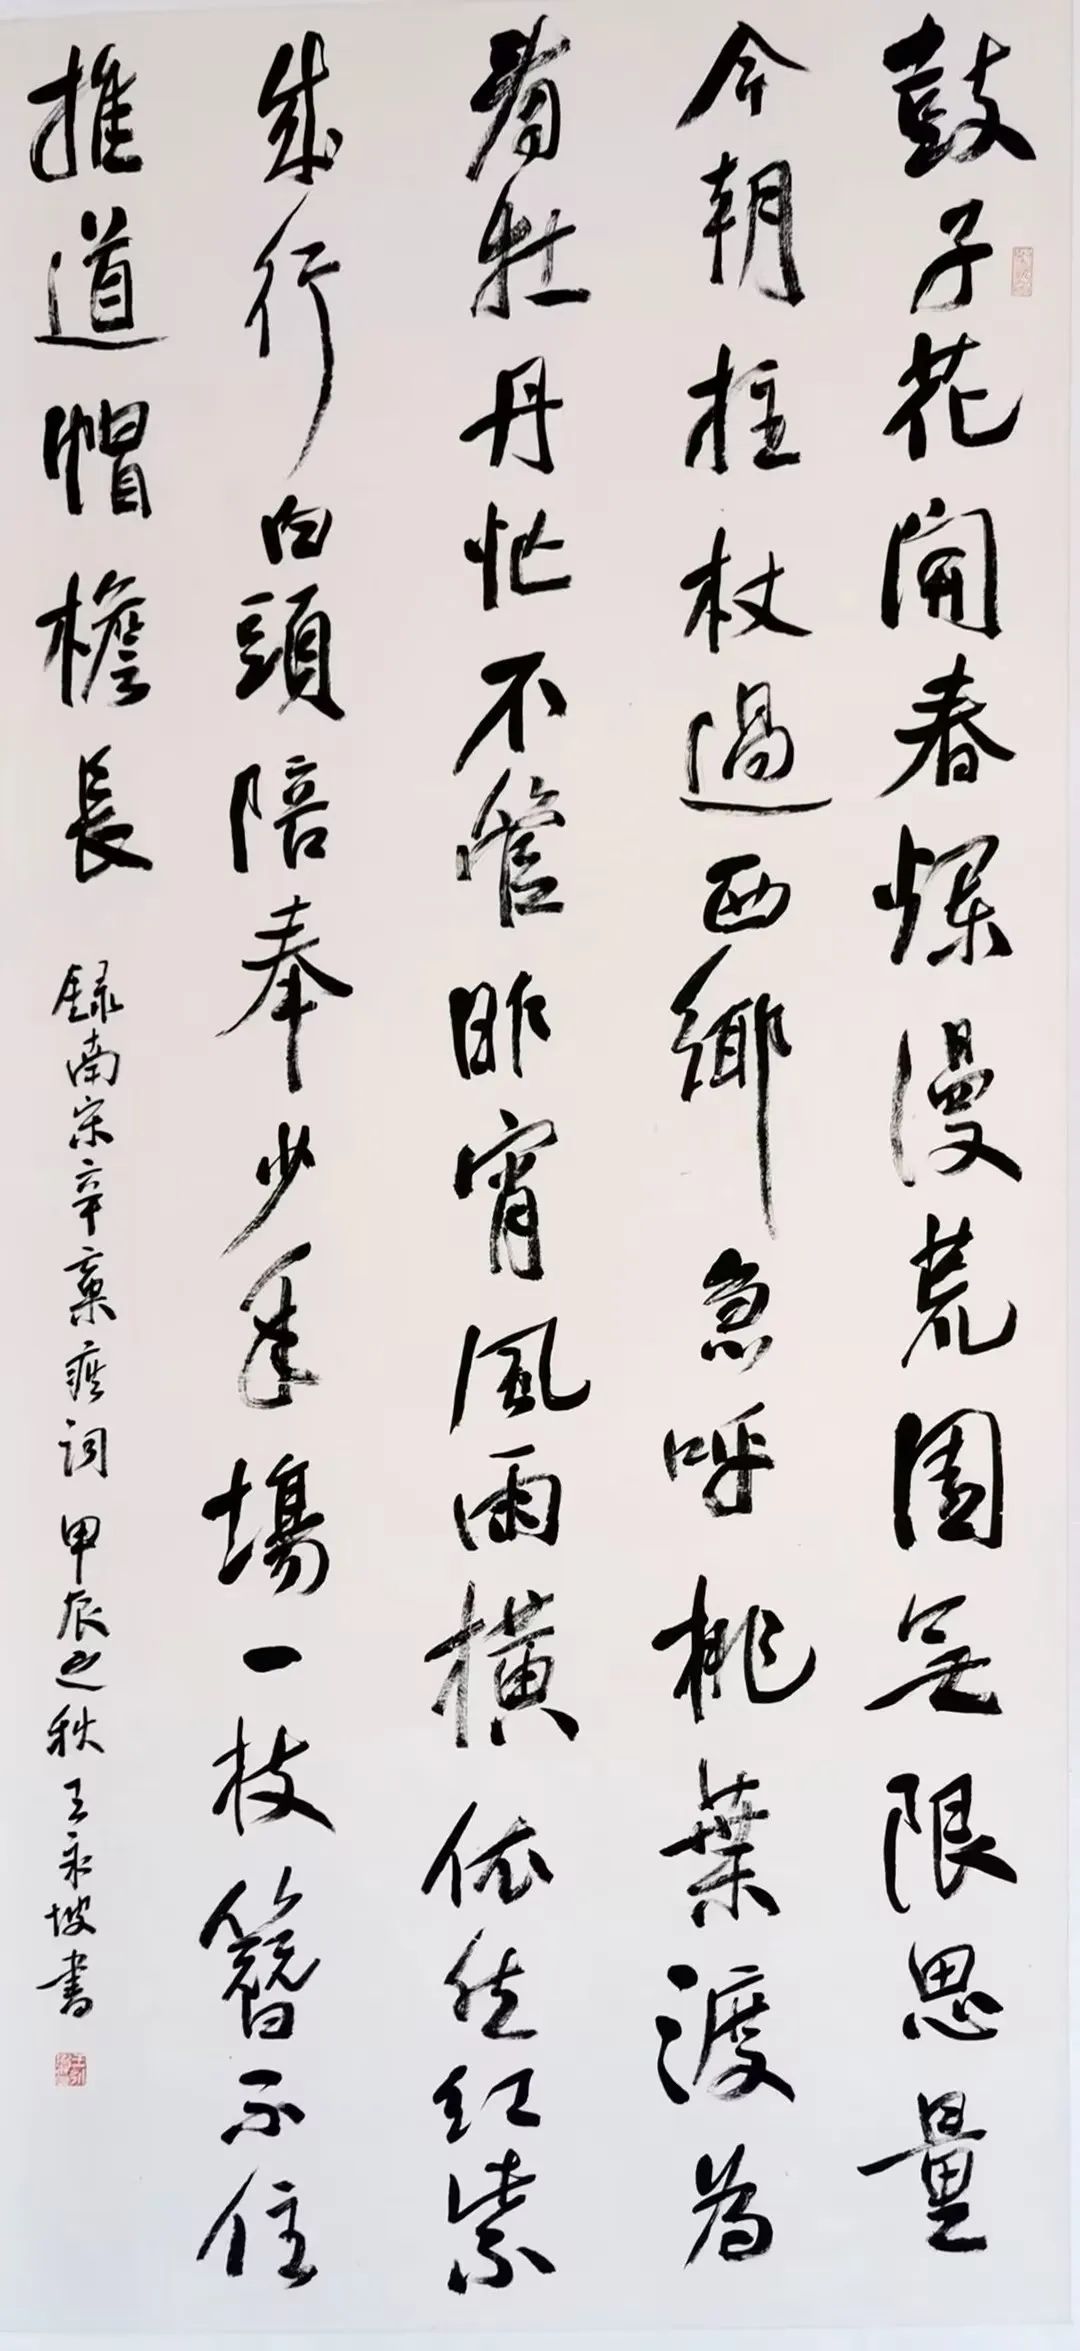 鼓子花開春爛漫荒園無限思量
今朝拄杖過西鄉急呼桃葉渡為
看牡丹忙不管昨宵風雨橫依然紅紫
成行白頭陪奉少年場一枝簪不住
推道帽檐長
録南宋辛棄疾詞甲辰之秋王永坡書